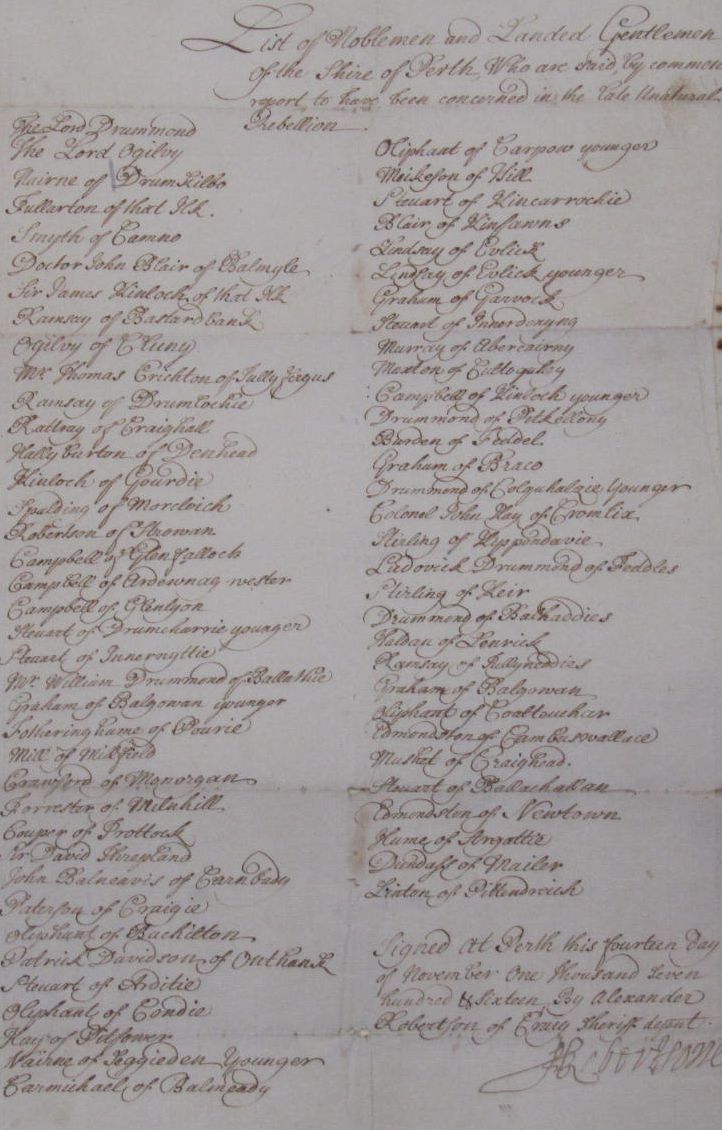 List of Noblemen and Landed Gentlemen
of the Shire of Perth, Who are said, by common
report, to have been concerned in the late Unatural
Rebellion.
The Lord Drummond
The Lord Ogilvy
Nairne of Drumkilbo
Fullarton of that Ilk.
Smyth of Camno
Doctor John Blair of Balmyle
Sir James Kinloch of that Ilk
Ramsay of Bastardbank
Ogilvy of Cluny
Mr. Thomas Crichton of Tullyfergus
Ramsay of Drumlochie
Rattray of Craighall
Hallyburton of Denhead
Kinloch of Gourdie
Spalding of
Robertson of Strowan
Campbell of Glenfalloch
Campbell of Ardewnag wester
Campbell of Glenlyon
Steuart of Drumcharrie younger
Steuart of Innernyttie
Mr. William Drummond of Ballathie
Graham of Balgowan younger
Fotheringhame of Pourie
Mill of Milnfield
Crawford of Monorgan
Forrester of Milnhill
Couper of
Sir David Threpland
John Balneavis of Carnbady
Paterson of Craigie
Oliphant of Bachilton
Patrick Davidson of Outhank
Steuart of Arditie
Oliphant of Condie
Hay of Pitfower
Nairne of Aggieden Younger
Carmichael of Balmeady
Oliphant of Carpow younger
of Hill
Steuart of Kincarrochie
Blair of Kinfawns
Lindsay of Evlick
Lindsay of Evlick younger
Graham of Garvock
Steuart of
Murray of Abercairny
Maxton of Cultoquhy
Campbell of Kinloch younger
Drummond of Pitkellony
Burden of Feddel
Graham of Braco
Drummond of Colquhalzie Younger
Colonel John Hay of Cromlix
Stirling of Kippondavie
Ludovick Drummond of Feddles
Stirling of Keir
Drummond of Balhaddies
Haldan of Lenrick
Ramsay of Tullyneddies
Graham of Balgowan
Oliphant of
Edmondston of Cambuswallace
Mushet of Craighead.
Steuart of Ballachallan
Edmondston of Newtown
Hume of Argattie
Dundass of Nailer
Linton of Pittendreich
Signed At Perth this fourteen Day
of November One thousand seven
hundred & sixteen By Alexander
Robertson of Craig Sheriff deput.
ARobertsone